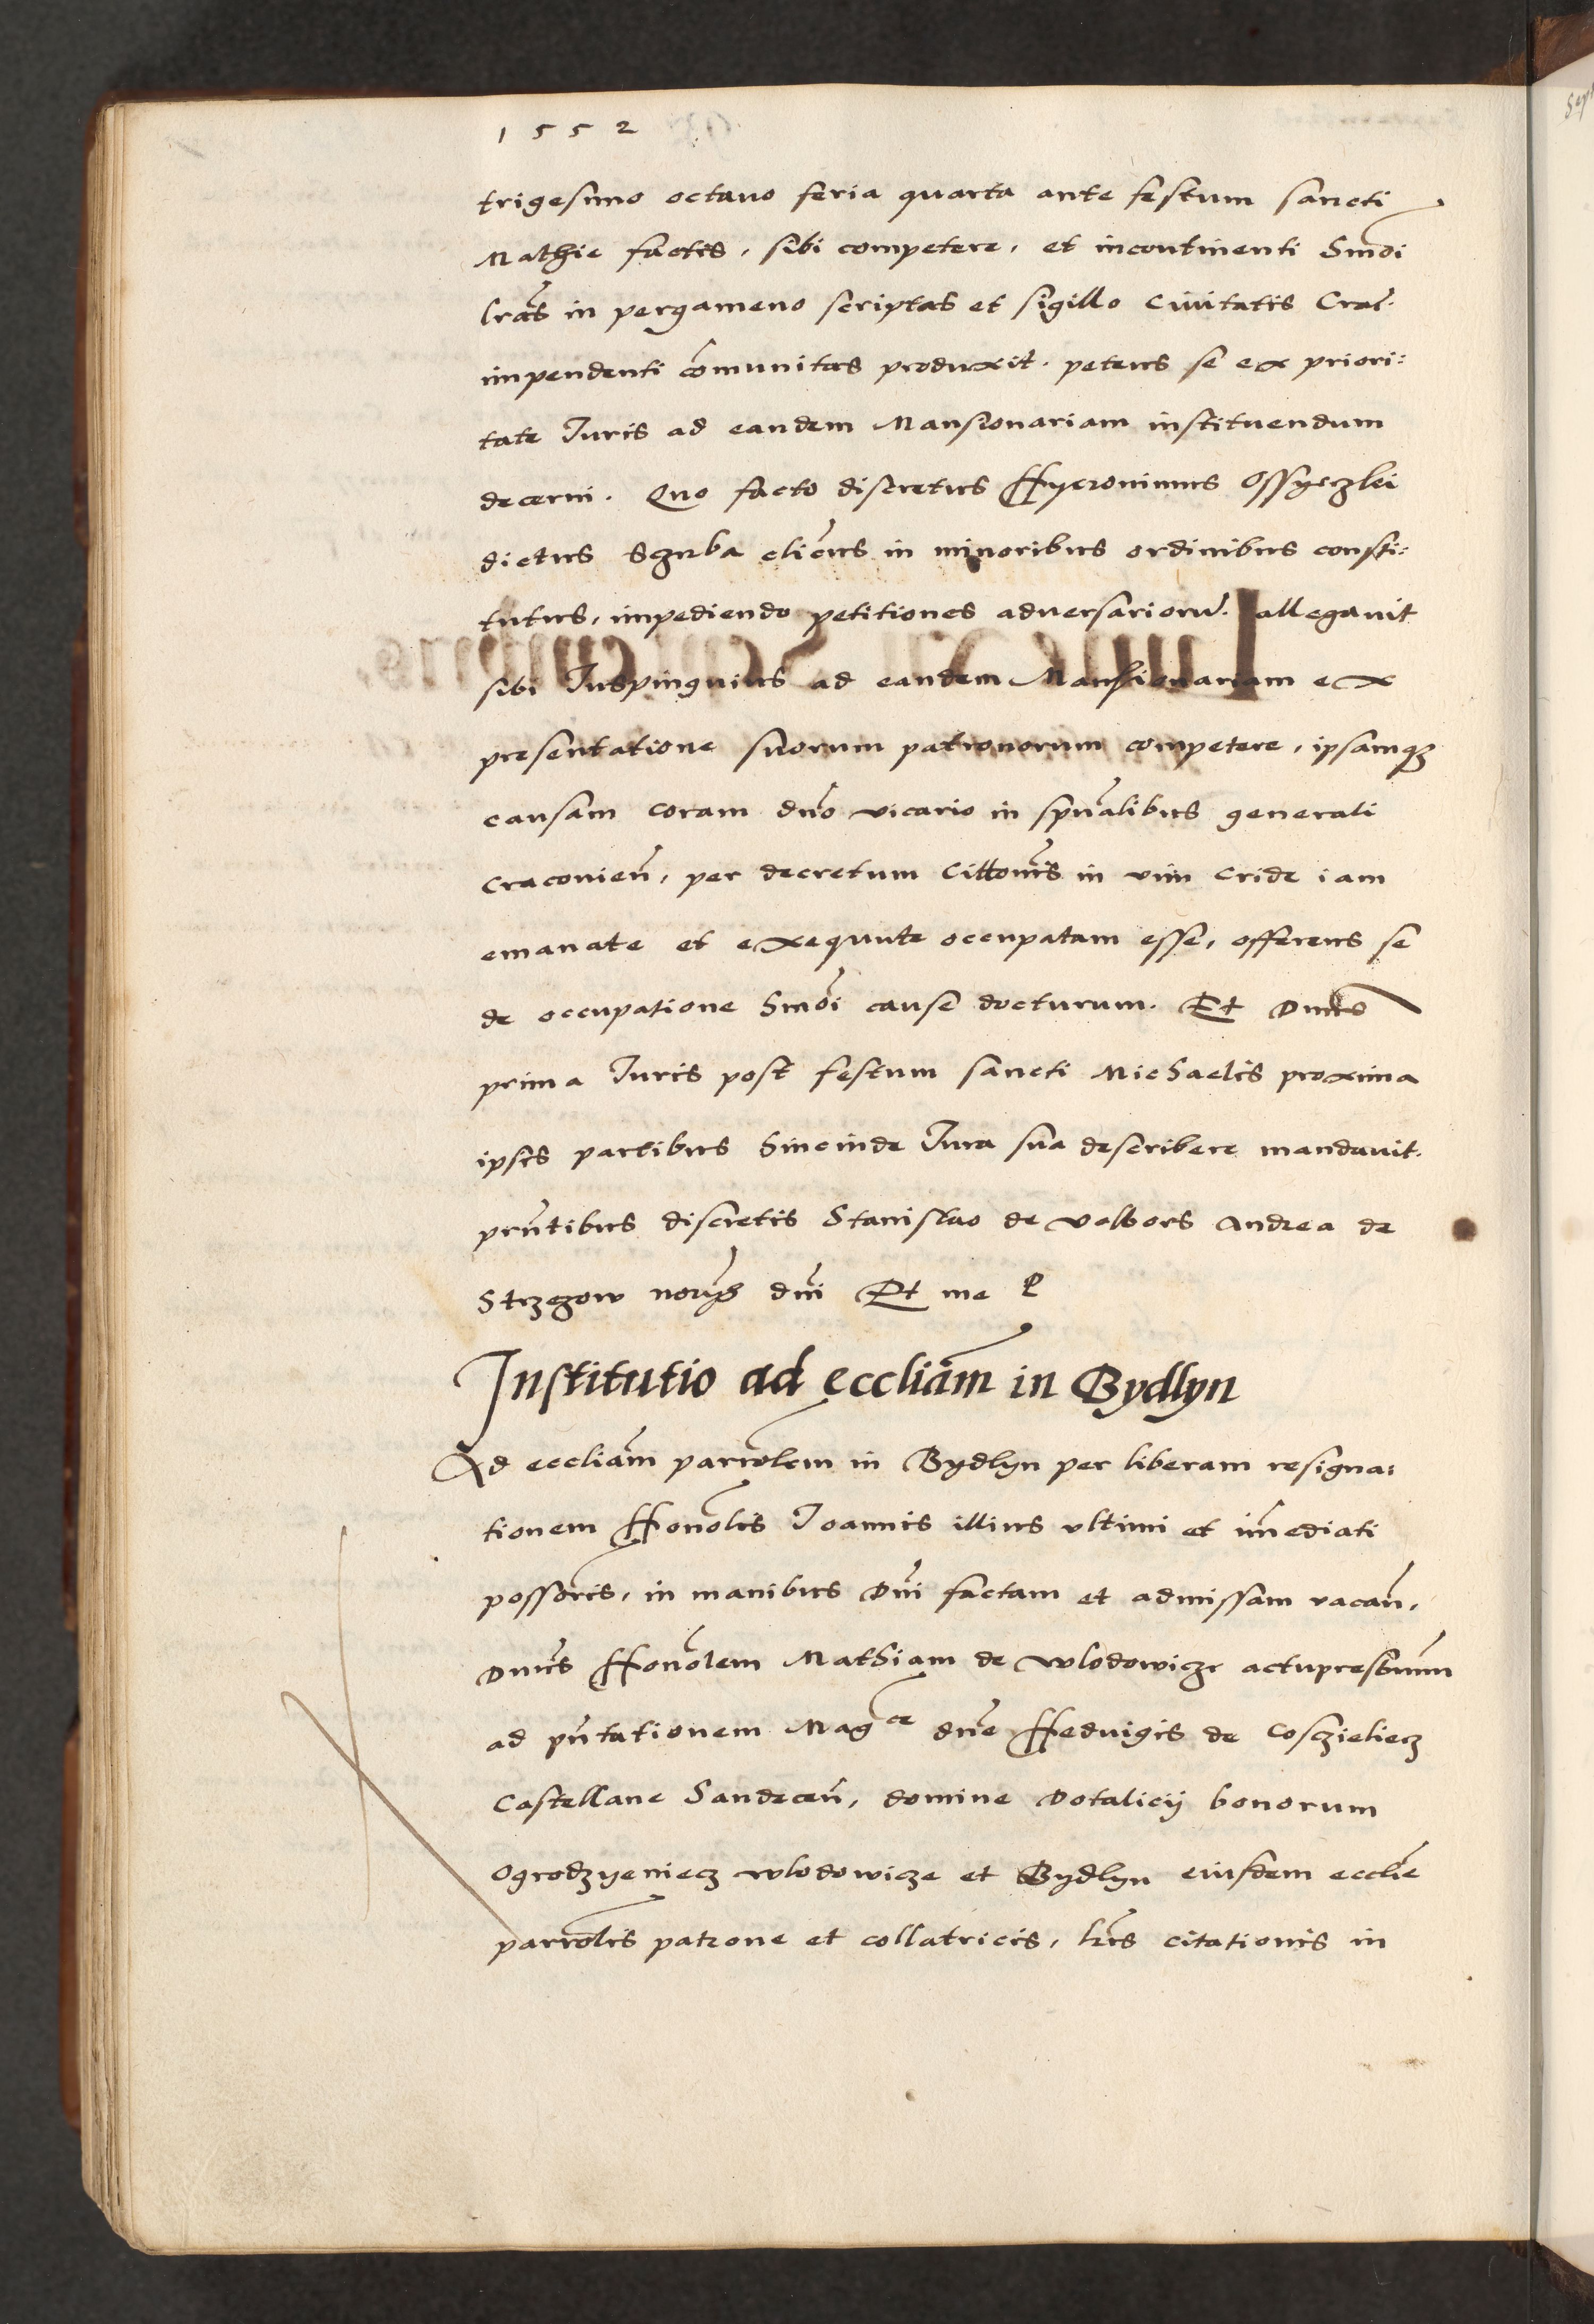 1552
trigesimo octauo feria quarta ante festum sancti
Mathie factis, sibi competere, et incontinenti hmoi
lras in pergameno scriptas et sigillo Ciuitatis Crac.
impendenti comunitas produxit. petens se ex priori:
tate Iuris ad eandem Mansionariam instituendum
decerni. Quo facto discretus Hyeronimus Ossyeczki
dictus Szuba clicus in minoribus ordinibus consti:
tutus, impediendo petitiones adversarioru. allegauit
sibi Iuspinguius ad eandem Mansionariam ex
presentatione suorum patronorum competere, ipsamq3
causam coram dno vicario in spualibus generali
Cracouien, per decretum Cittonis in vim Cride iam
emanate et exequute occupatam esse, offerens se
de occupatione hmoi cause docturum. Et Dnus
prima Iuris post festum sancti Michaelis proxima
ipsis partibus hincinde Iura sua describere mandauit.
pntibus discretis Stanislao de volbors Andrea de
Strzegow dni Et me
Institutio ad eccliam in Bydlyn
Ad eccliam parrolem in Bydlyn per liberam resigna:
tionem Honolis Ioannis illius vltimi et imediati
possoris, in manibus Dni factam et admissam vacan,
Dnus Honolem Mathiam de wlodowicze actupresbitum
ad pntationem Magce dne Hedvigis de Cosczieliecz
Castellane Sandecen, domine Dotalicij bonorum
Ogrodzyeniecz wlodowicze et Bydlyn eiusdem ecclie
parrolis patrone et collatricis, lris citationis in